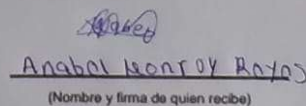 Anabel Monroy Reyes
(Nombre y firma de quien recibe)